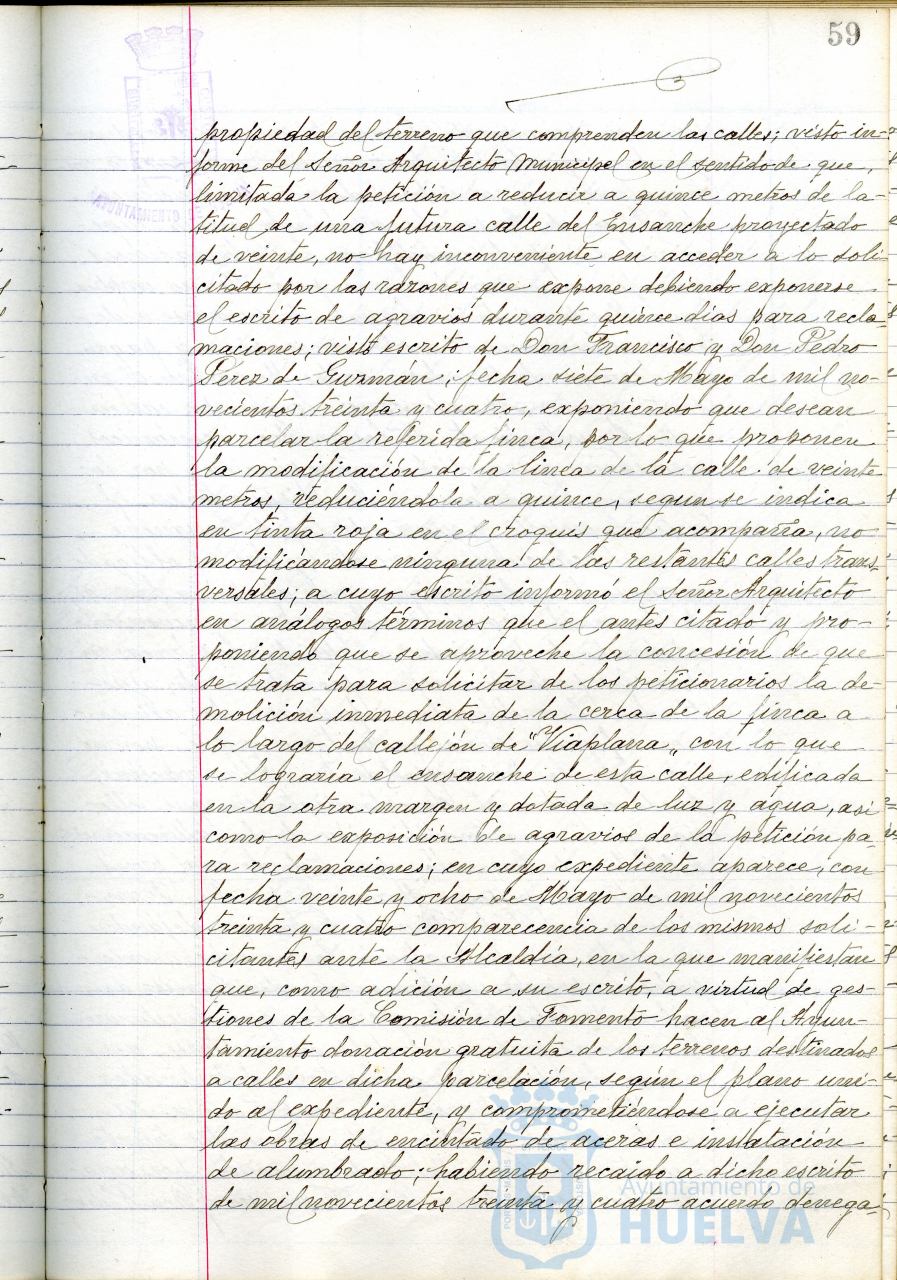 59
AYUNTAMIENTO DE
propiedad del terreno que comprenden las calles; visto in-
forme del Señor Arquitecto Municipal en el sentido de que,
limitada la petición a reducir a quince metros de la-
titud de una futura calle del Ensanche proyectado
de veinte, no hay inconveniente en acceder a lo soli-
citado por las razones que expone debiendo exponerse
el escrito de agravios durante quince dias para recla-
maciones; visto escrito de Don Francisco y Don Pedro
Pérez de Guzmán, fecha siete de Mayo de mil no-
vecientos treinta y cuatro, exponiendo que desean
parcelar la referida finca, por lo que proponen
la modificación de la linea de la calle de veinte
metros, reduciéndola a quince, segun se indica
en tinta roja en el croquis que acompaña, no
modificándose ninguna de las restantes calles trans-
versales; a cuyo escrito informó el Señor Arquitecto
en análogos términos que el antes citado y pro-
poniendo que se aproveche la concesión de que
se trata para solicitar de los peticionarios la de-
molición inmediata de la cerca de la finca a
lo largo del callejón de "Viaplana" con lo que
se lograría el ensanche de esta calle, edificada
en la otra margen y dotada de luz y agua, asi
como la exposición de agravios de la petición pa-
ra reclamaciones; en cuyo expediente aparece, con
fecha veinte y ocho de Mayo de mil novecientos
treinta y cuatro comparecencia de los mismos soli-
citantes ante la Alcaldía, en la que manifiestan
que, como adición a su escrito, a virtud de ges-
tiones de la Comisión de Fomento hacen al Ayun-
tamiento donación gratuita de los terrenos destinados
a calles en dicha parcelación, según el plano uni-
do al expediente, y comprometiéndose a ejecutar
las obras de encintado de aceras e instalación
de alumbrado; habiendo recaido a dicho escrito
de mil novecientos treinta y cuatro acuerdo denega-
Ayuntamiento de
HUELVA